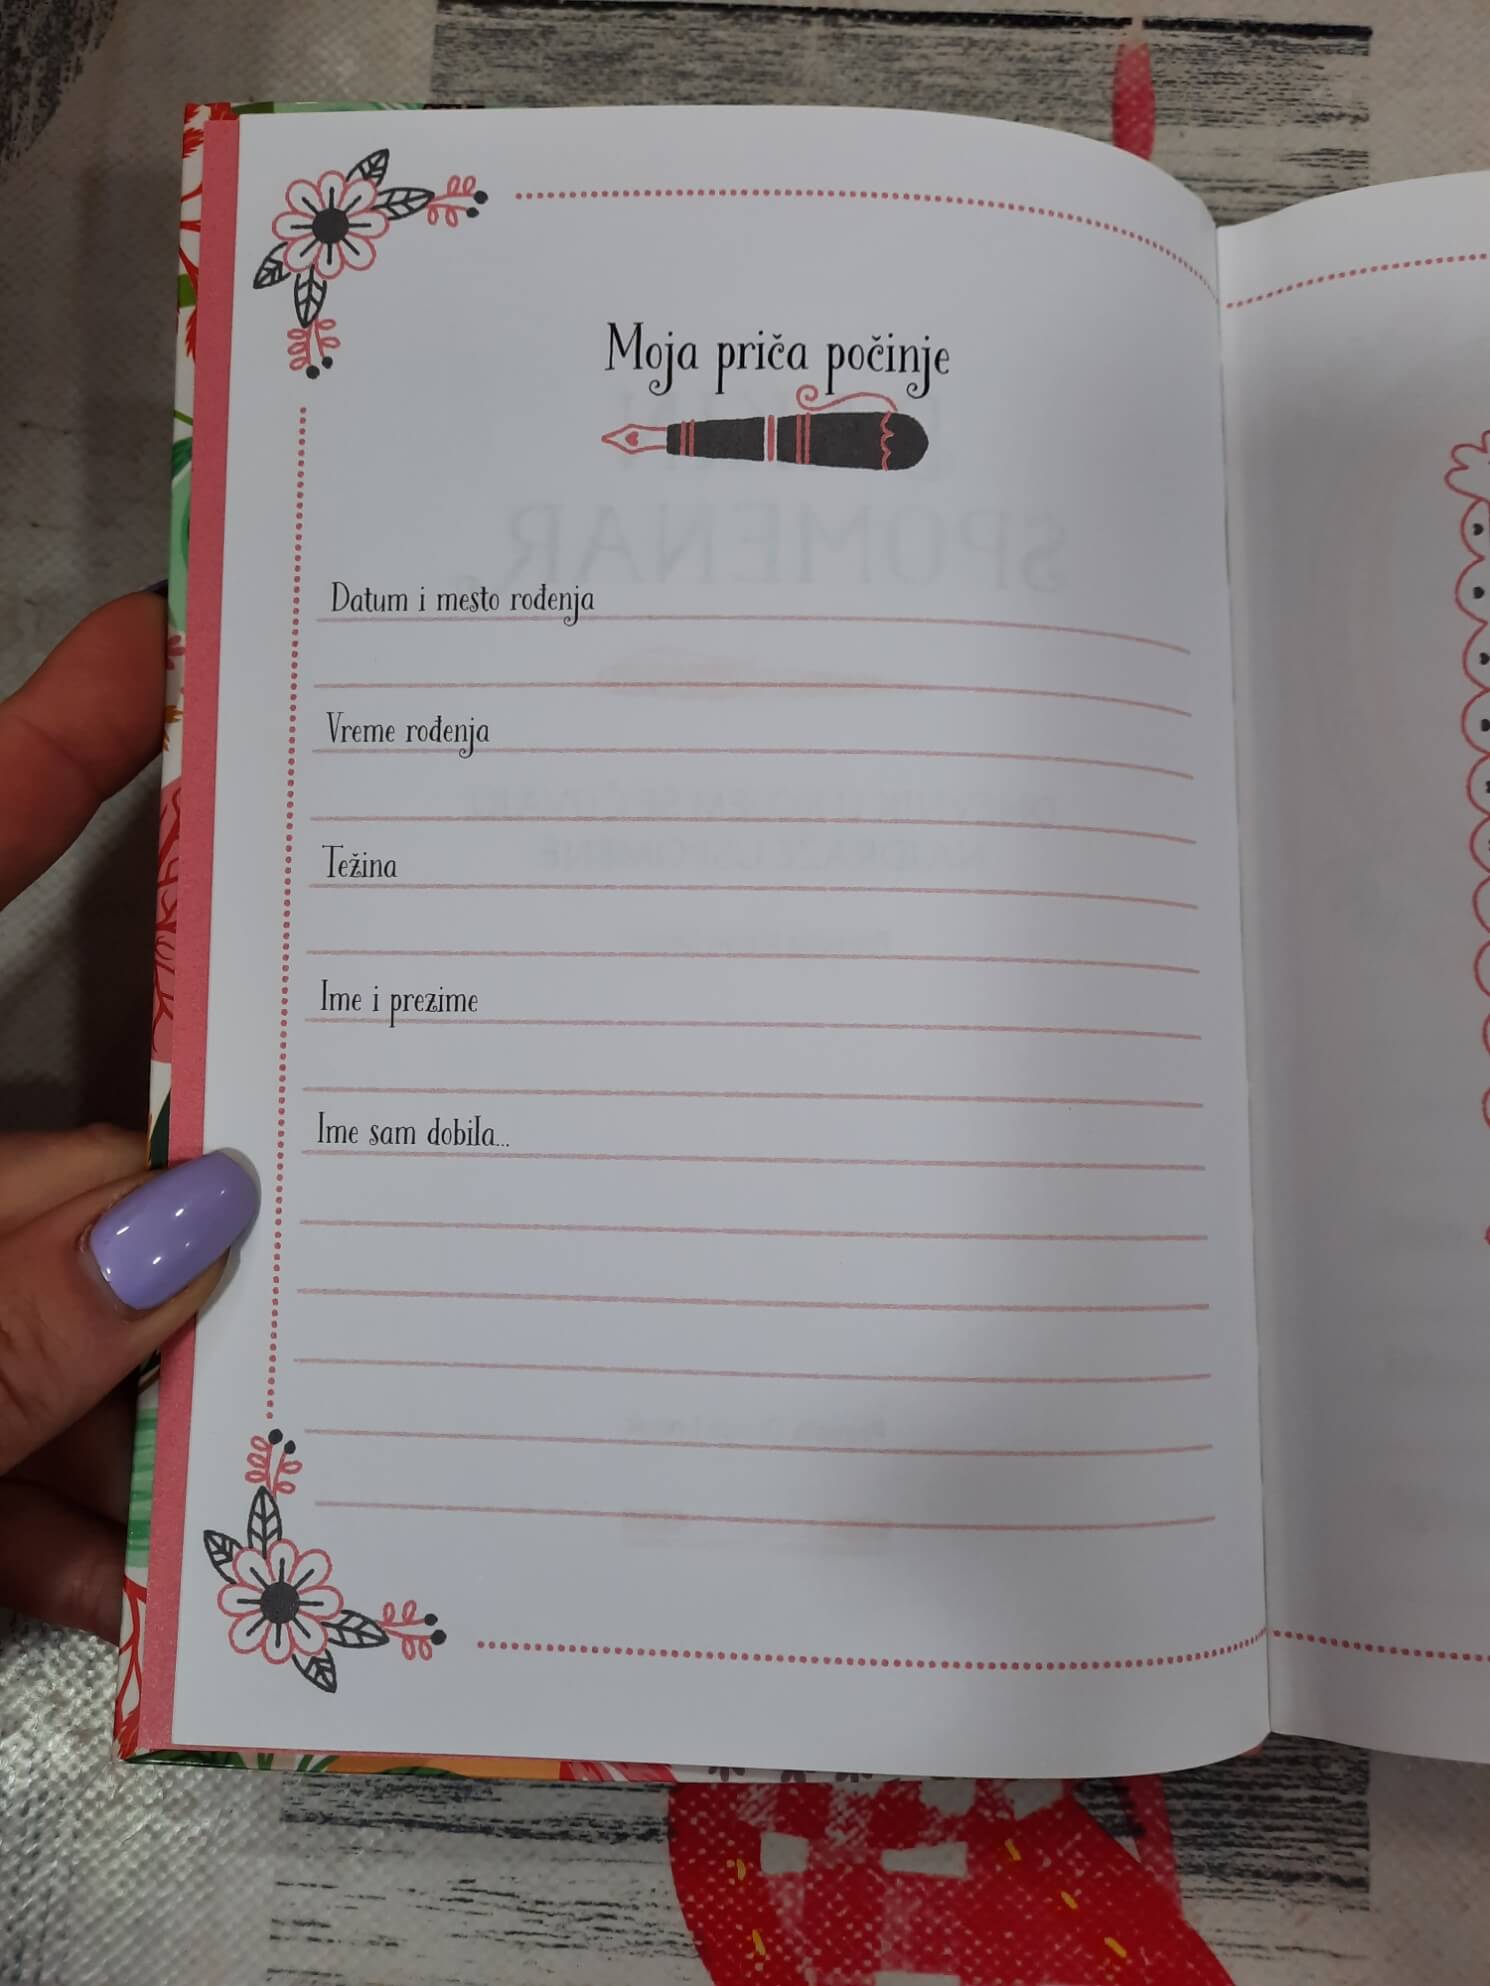 Moja priča počinje
Datum i mesto rođenja
Vreme rođenja
Težina
Ime i prezime
Ime sam dobila...
SPOMENAR